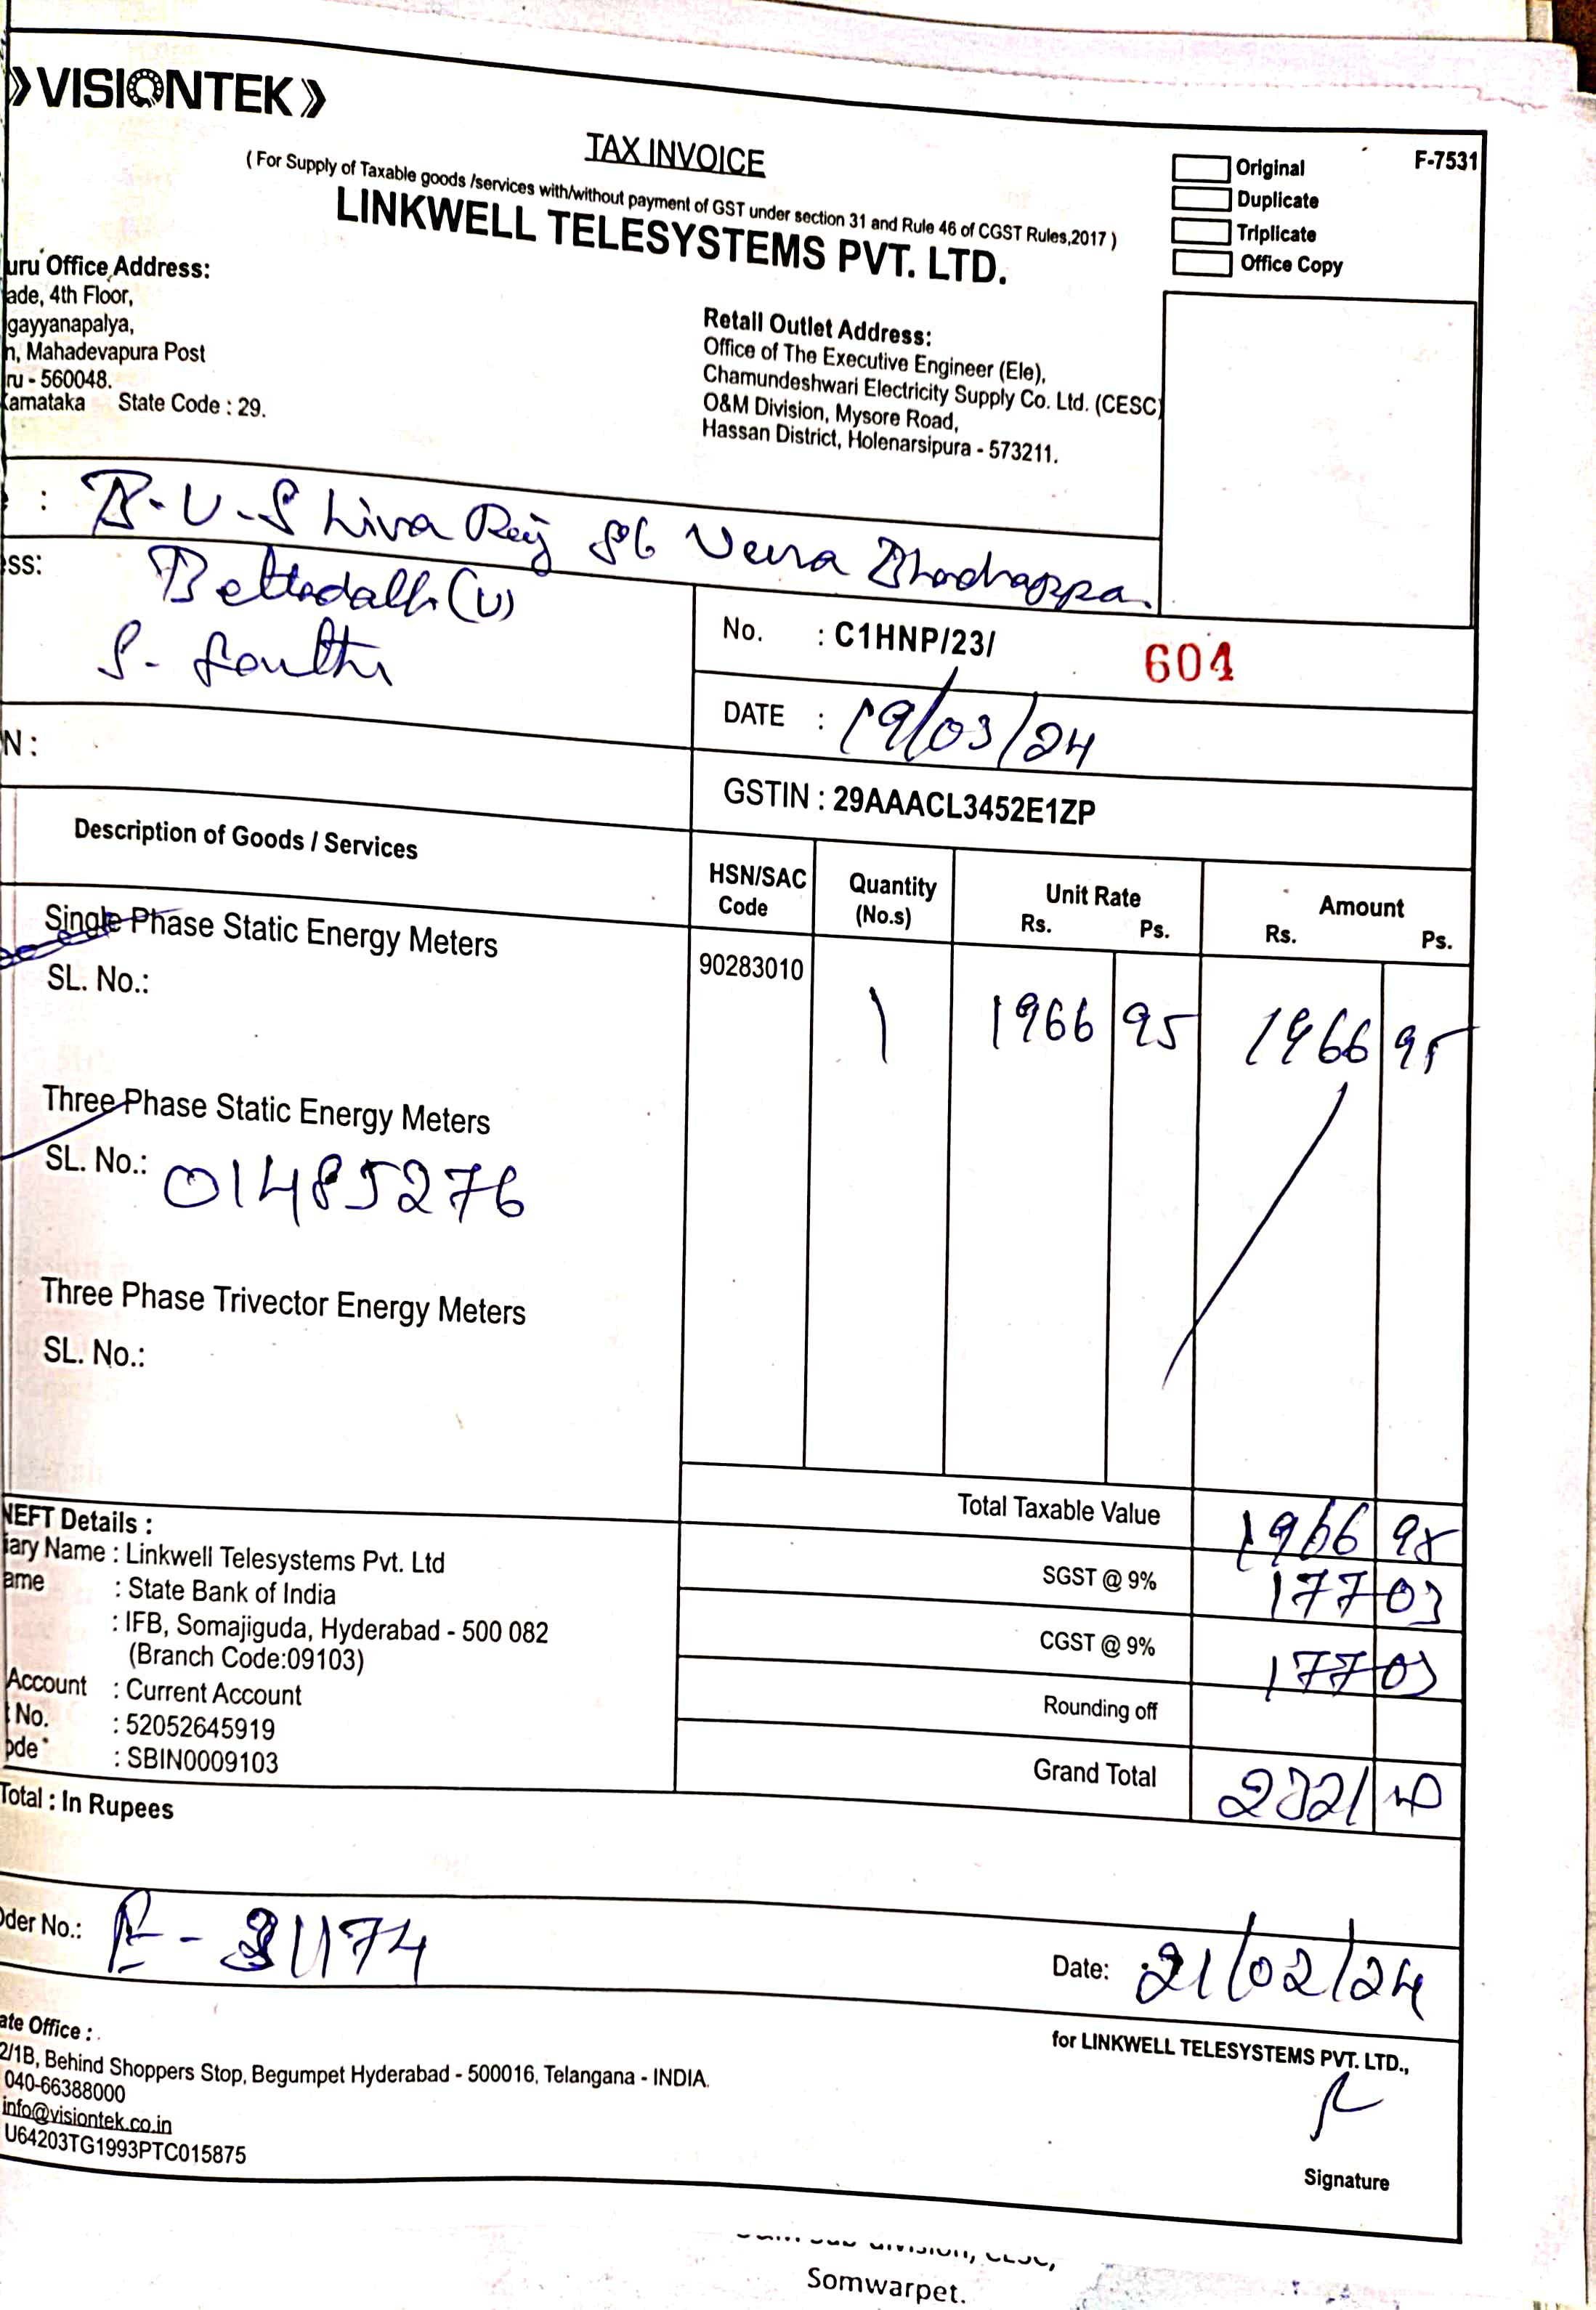 VISIONTEK
TAX INVOICE
( For Supply of Taxable goods /services with/without payment of GST under section 31 and Rule 46 of CGST Rules,2017 )
LINKWELL TELESYSTEMS PVT. LTD.
F-7531
Original
Duplicate
Triplicate
Office Copy
uru Office Address:
ade, 4th Floor,
gayyanapalya,
n, Mahadevapura Post
ru - 560048.
Karnataka State Code : 29.
Retail Outlet Address:
Office of The Executive Engineer (Ele),
Chamundeshwari Electricity Supply Co. Ltd. (CESC)
O&M Division, Mysore Road,
Hassan District, Holenarsipura - 573211.
: B-U-Shiva Raj Veera Bhadrappa.
ss: Bettadalli (U)
No. : C1HNP/23/ 604
DATE : 19/03/24
N :
GSTIN : 29AAACL3452E1ZP
Description of Goods / Services
HSN/SAC Code
Quantity (No.s)
Unit Rate
Rs. Ps.
Amount
Rs. Ps.
Single Phase Static Energy Meters
SL. No.:
90283010 1 1966 95 1966 95
Three Phase Static Energy Meters
SL. No.: 01485276
Three Phase Trivector Energy Meters
SL. No.:
Total Taxable Value 1966 95
SGST @ 9% 177 03
CGST @ 9% 177 03
Rounding off
Grand Total 2321
NEFT Details :
iary Name : Linkwell Telesystems Pvt. Ltd
ame : State Bank of India
: IFB, Somajiguda, Hyderabad - 500 082
(Branch Code:09103)
Account : Current Account
t No. : 52052645919
ode : SBIN0009103
Total : In Rupees
Oder No.: 31174
Date: 21/02/24
ate Office :
2/1B, Behind Shoppers Stop, Begumpet Hyderabad - 500016, Telangana - INDIA.
040-66388000
info@visiontek.co.in
U64203TG1993PTC015875
for LINKWELL TELESYSTEMS PVT. LTD.,
Signature
Somwarpet.